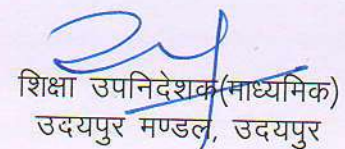 शिक्षा उपनिदेशक(माध्यमिक)
उदयपुर मण्डल, उदयपुर